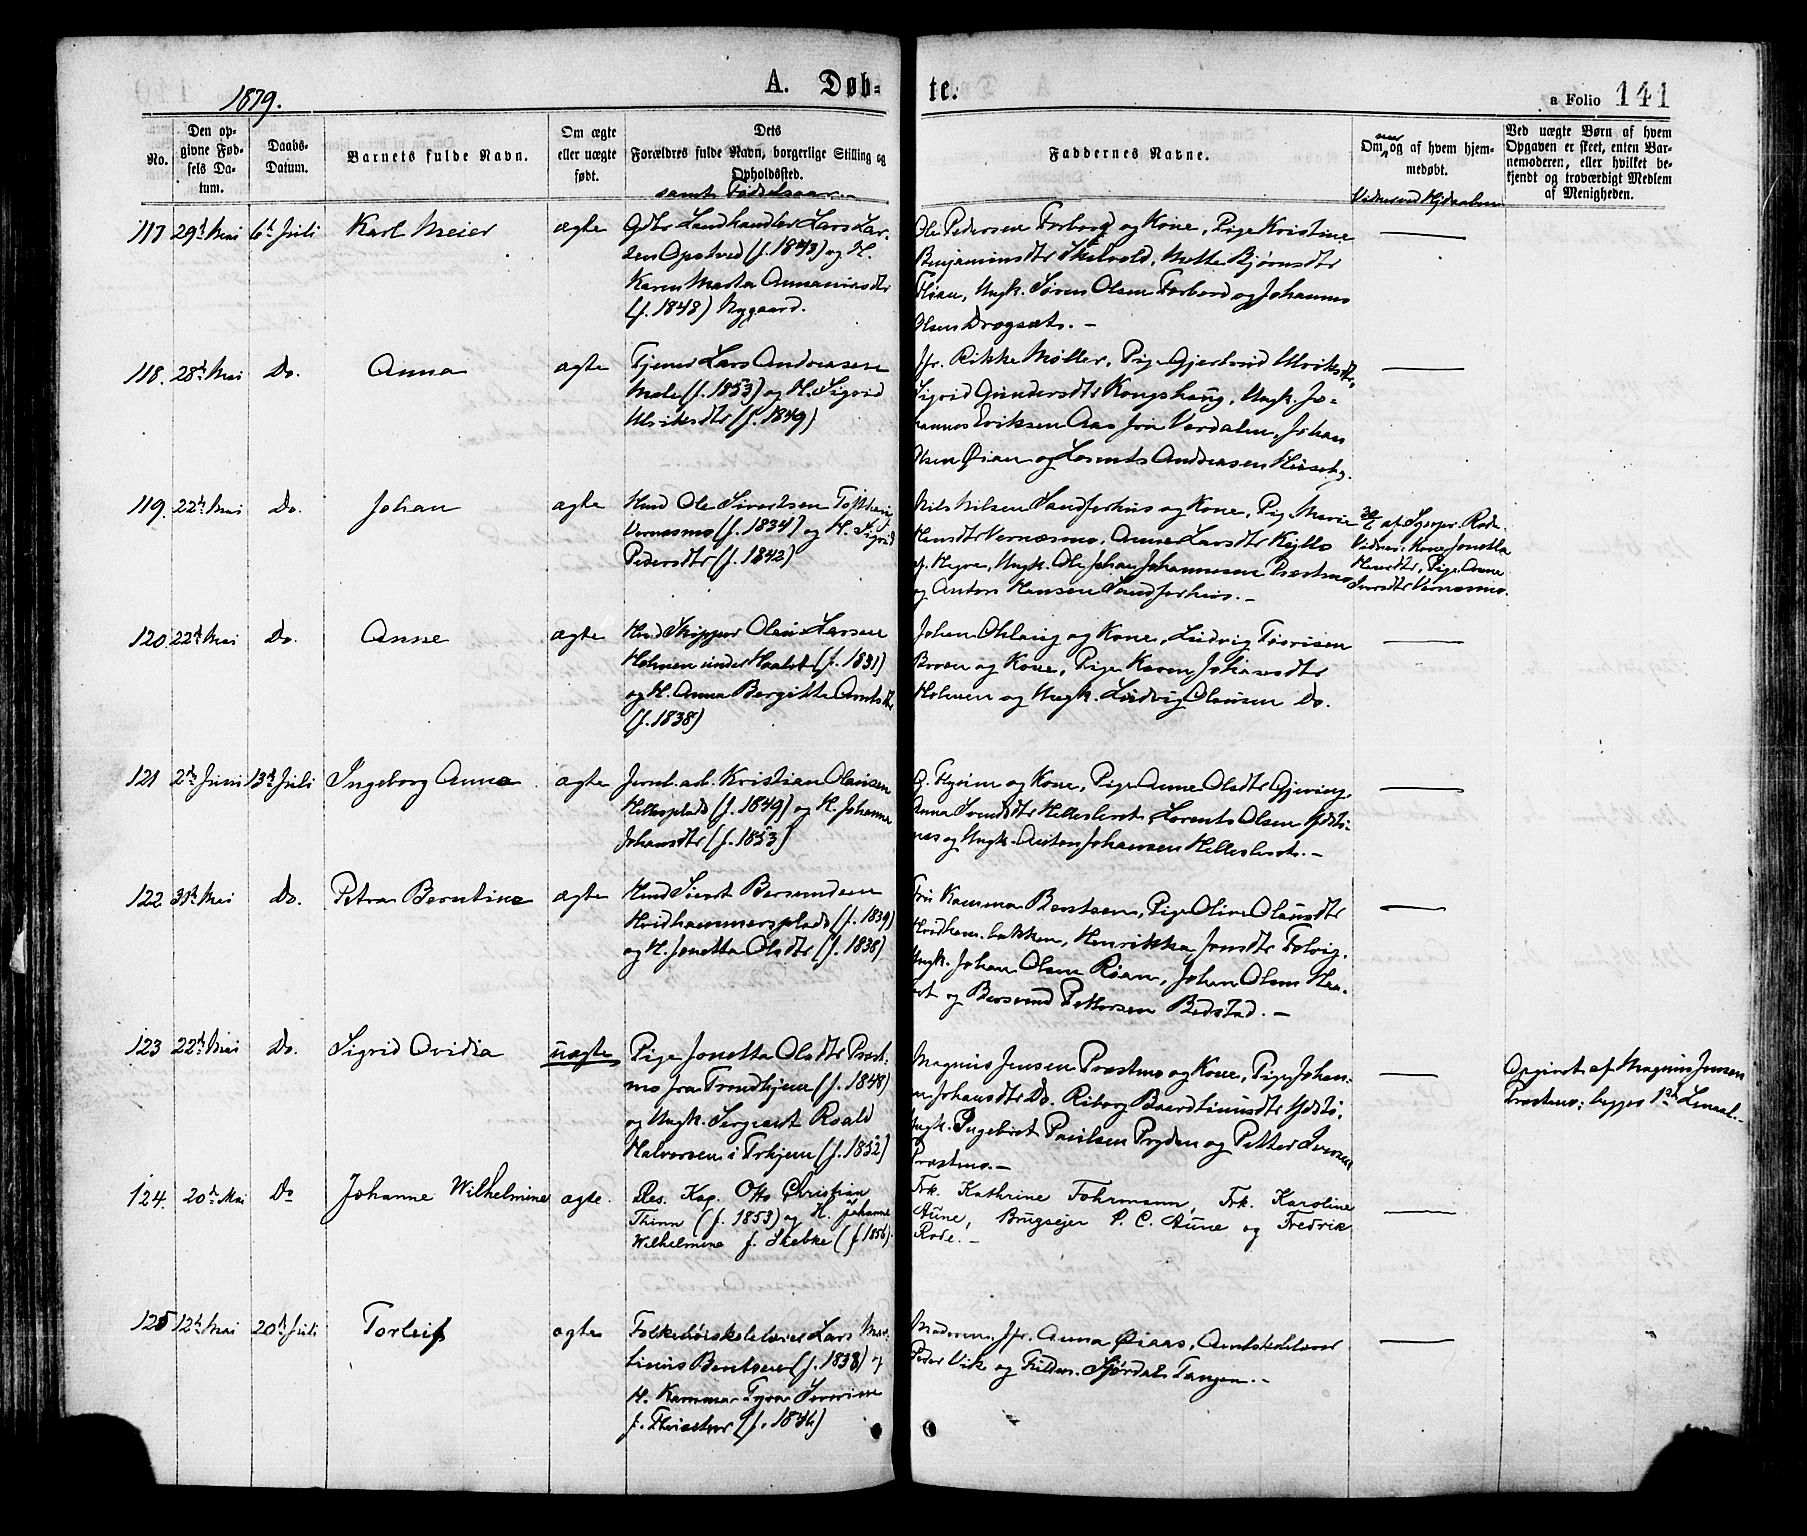 1879.
A. Døb-
te.
a Folio 141
No.
Den op-
givne Fød-
sels Da-
tum.
Daabs-
Datum.
Barnets fulde Navn.
Om ægte
eller uægte
født.
Dets
Forældres fulde Navn, borgerlige Stilling og
Opholdssted.
samt Fødselsaar
Faddernes Navne.
Om naar og af hvem hjem-
medøbt.
Ved uægte Børn af hvem
Opgaven er skeet, enten Bar-
nemoderen, eller hvilket be-
kjendt og troværdigt Medlem
af Menigheden.
117 29de Mai 6te Juli Karl Meier ægte
Gdbr Landhandler Lars Lar-
sen Opstved (f. 1843) og H.
Karen Marta Annaniasdtr
(f. 1848) Nygaard.
Ole Pedersen Forbord og Kone, Pige Kristine
Benjaminsdtr Skelvold, Mette Bjørnsdtr
Ungk. Søren Olsen Forbord og Johannes
Olsen Dragsæt. -
118. 28de Mai Do. Anna ægte
Tjener Lars Andreasen
Male (f. 1853) og H. Sigrid
Ulriksdtr (f. 1849)
Jfr. Rikke Møller, Pige Gjertrud Ulriksdtr,
Sigrid Gundersdtr Kongshaug, Ungk. Jo-
hannes Eriksen Aas fra Verdalen, Johan
Olsen Øian og Lorents Andreasen
119. 22de Mai Do. Johan ægte
Hmd Ole Sivertsen
Vernæsmo (f. 1834) og H. Sigrid
Pedersdtr (f. 1842)
Nils Nilsen Sandferhus og Kone, Pige Marie
Hansdtr Vernæsmo, Anne Larsdtr Kyllo
af Hegre, Ungk. Ole Johan Johannesen Præstmo
og Anton Hansen Sandferhus. -
Vidner: Kone Jonetta
Hansdtr, Pige Anne
Vernæsmo.
120. 22de Mai Do. Anne ægte
Hmd Skipper Olaus Larsen
Holmen under Haabet (f. 1831)
og H. Anna Bergitta Arntsdtr
(f. 1838)
Johan Øhlaug og Kone, Ludvig
og Kone, Pige Karen Johansdtr
Holmen og Ungk. Ludvig Olausen Do.
121 2den Juni 13de Juli Ingeborg Anna ægte
Jernb. arb. Kristian Olausen
Hellesplads (f. 1849) og H. Johanna
Johansdtr (f. 1853)
og Kone, Pige Anne Olsdtr Gjeving,
Anna Hellesbust, Lorents Olsen Ydsti-
nes og Ungk. Anton Johansen Hellesbust. -
122 31te Mai Do. Petra Berntine ægte
Hmd Sivert Bersvendsen
Hvidhammersplads (f. 1839)
og H. Jonetta Olsdtr (f. 1838)
Fru Kamma Bentsen, Pige Oline Olausdtr
Hvidham. bakken, Henrikka Jonsdtr Folvig,
Ungk. Johan Olsen Røan, Johan Olsen Haa-
bet og Bersvend Pettersen Bedstad. -
123 22de Mai Do. Sigrid Ovidia uægte
Pige Jonetta Olsdtr Præst-
mo fra Trondhjem (f. 1848)
og Ungk. Sergeant Roald
Halvorsen i Trhjem (f. 1852)
Magnus Jensen Præstmo og Kone, Pige Johan-
na Johansdtr Do.
Ungk. Ingebret Paulsen Prysden og Petter Iversen
Præstmo. -
Opgivet af Magnus Jensen
Præstmo; begges 1ste Lemaal. -
124. 20de Mai Do Johanne Wilhelmine ægte.
Res. Kap. Otto Christian
Thinn (f. 1853) og H. Johanne
Wilhelmine f. Skebke (f 1856).
Frk. Kathrine Fohrmann, Frk. Karoline
Aune, Brugsejer P. C. Aune og Fredrik
Rode. -
125 12te Mai 20de Juli Torleif ægte
Folkehøiskolelærer Lars Mar-
tinius Bentsen (f. 1838) og
H. Kamma Tyra Severine
f. (f. 1846)
Moderen, Jfr. Anna Øiaas, Amtskolelærer
Peder Vik og Fuldm. Sjørdal Tangen. -